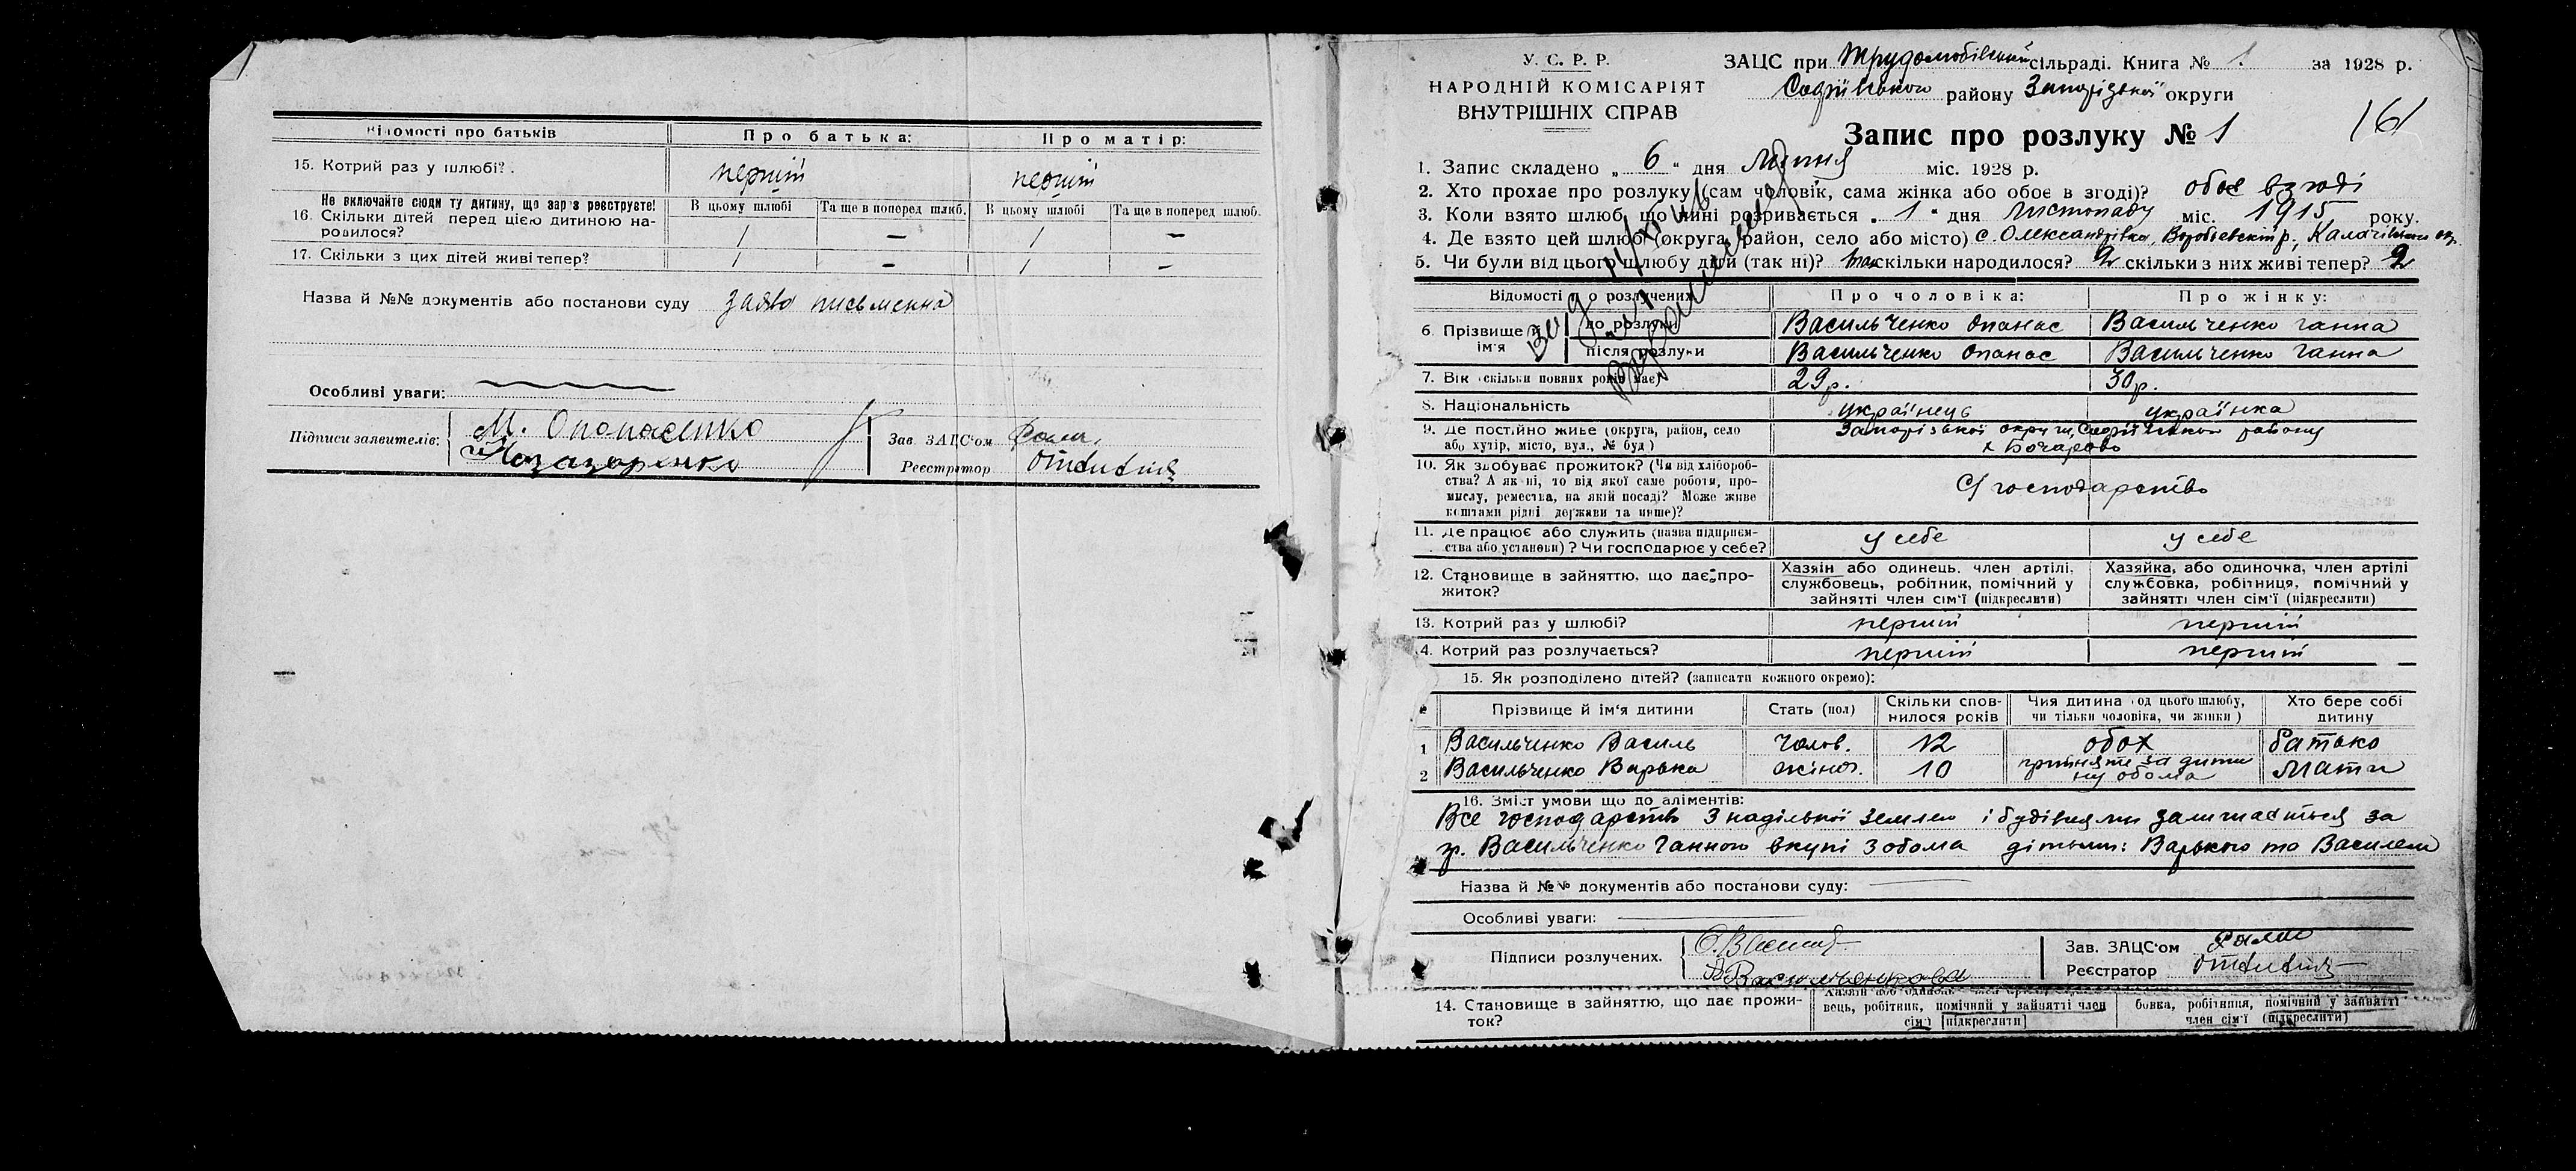 Відомості про батьків
Про батька:
Про матір:
15. Котрий раз у шлюбі?.
перший
перший
Не включайте сюди ту дитину, що зараз реєструєте!
16. Скільки дітей перед цією дитиною на-
родилося?
В цьому шлюбі
Та ще в поперед шлюб.
В цьому шлюбі
Та ще в поперед шлюб.
1
—
1
—
17. Скільки з цих дітей живі тепер?
1
—
1
—
Назва й №№ документів або постанови суду заява письменна
Особливі уваги:
Підписи заявителів:
М. Опонасенко
Назаренко
Зав. ЗАЦС'ом
Реєстратор
У. С. Р. Р.
НАРОДНІЙ КОМІСАРІЯТ
ВНУТРІШНІХ СПРАВ
ЗАЦС при Трудолюбівській сільраді. Книга № 1. за 1928 р.
Софіївського району Запорізької округи
161
Запис про розлуку № 1
1. Запис складено „ 6 " дня Липня міс. 1928 р.
2. Хто прохає про розлуку (сам чоловік, сама жінка або обоє в згоді)? обоє в згоді
3. Коли взято шлюб, що нині розривається „ 1 " дня листопаду міс. 1915 року.
4. Де взято цей шлюб (округа, район, село або місто) с. Олександрівка,
5. Чи були від цього шлюбу діти (так ні)? так скільки народилося? 2 скільки з них живі тепер? 2
Відомості про розлучених
Про чоловіка:
Про жінку:
6. Прізвище й
ім'я
до розлуки
Васильченко Опанас
Васильченко Ганна
після розлуки
Васильченко Опанас
Васильченко Ганна
7. Вік (скільки повних років має)
29р.
30р.
8. Національність
українець
українка
9. Де постійно живе (округа, район, село
або хутір, місто, вул., № буд)
Запорізької округи, Софіївського району
х Бочарово
10. Як здобуває прожиток? (Чи від хлібороб-
ства? А як ні, то від якої саме роботи, про-
мислу, ремества, на якій посаді? Може живе
коштами рідні держави та инше)?
С/господарство
11. Де працює або служить (назва підприєм-
ства або установи)? Чи господарює у себе?
у себе
у себе
12. Становище в зайняттю, що дає про-
житок?
Хазяін або одинець, член артілі,
службовець, робітник, помічний у
зайнятті член сім'ї (підкреслити)
Хазяйка, або одиночка, член артілі
службовка, робітниця, помічний у
зайнятті член сім'ї (підкреслити)
13. Котрий раз у шлюбі?
перший
перший
14. Котрий раз розлучається?
перший
перший
15. Як розподілено дітей? (записати кожного окремо):
Прізвище й ім'я дитини
Стать (пол)
Скільки спов-
нилося років
Чия дитина (од цього шлюбу,
чи тільки чоловіка, чи жінки)
Хто бере собі
дитину
1 Васильченко Василь чолов. 12 обох батько
2 Васильченко Варька жіноч. 10 прийняте за дити
ну обома мати
16. Зміст умови що до аліментів:
Все господарство з надільної землею і будівлями залишається за
гр. Васильченко Ганною вкупі з обома дітьми: Варькою та Василем
Назва й №№ документів або постанови суду:
Особливі уваги:
Підписи розлучених.
Зав. ЗАЦС'ом
Реєстратор
14. Становище в зайняттю, що дає прожи-
ток?
вець, робітник, помічний у зайнятті член
сім'ї [підкреслити]
бовка, робітниця, помічний у зайнятті
член сім'ї (підкреслити)